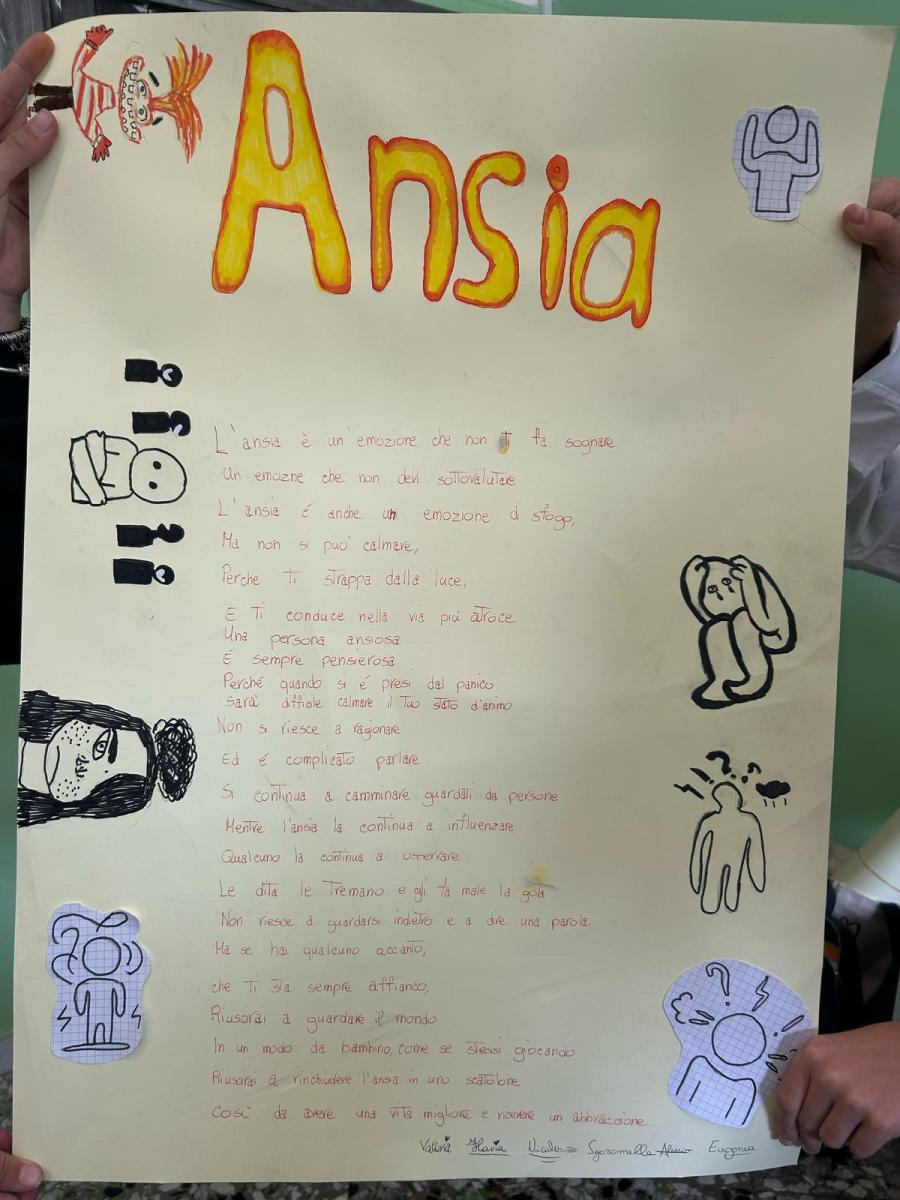 Ansia
L'ansia è un'emozione che non ti fa sognare
Un emozne che non devi sottovalutare
L'ansia é anche un emozione di sfogo,
Ma non si puo' calmare,
Perche ti strappa dalla luce,
E ti conduce nella via piú atroce
Una persona ansiosa
É sempre pensierosa
Perché quando si é presi dal panico
sarà difficile calmare il tuo stato d'animo
Non si riesce a ragionare
Ed é complicato parlare
Si continua a camminare guardati da persone
Mentre l'ansia la continua a influenzare
Qualcuno la continua a osservare
Le dita le tremano e gli fa male la gola
Non riesce a guardarsi indietro e a dire una parola.
Ma se hai qualcuno accanto,
che ti sia sempre affianco,
Riuscirai a guardare il mondo
In un modo da bambino, come se stessi giocando
Riuscirai a rinchiudere l'ansia in uno scatolone
Cosí da avere una vita migliore e ricevere un abbraccione.
Valeria Flavia Nicolas Sgaramella Alessio Eugenia